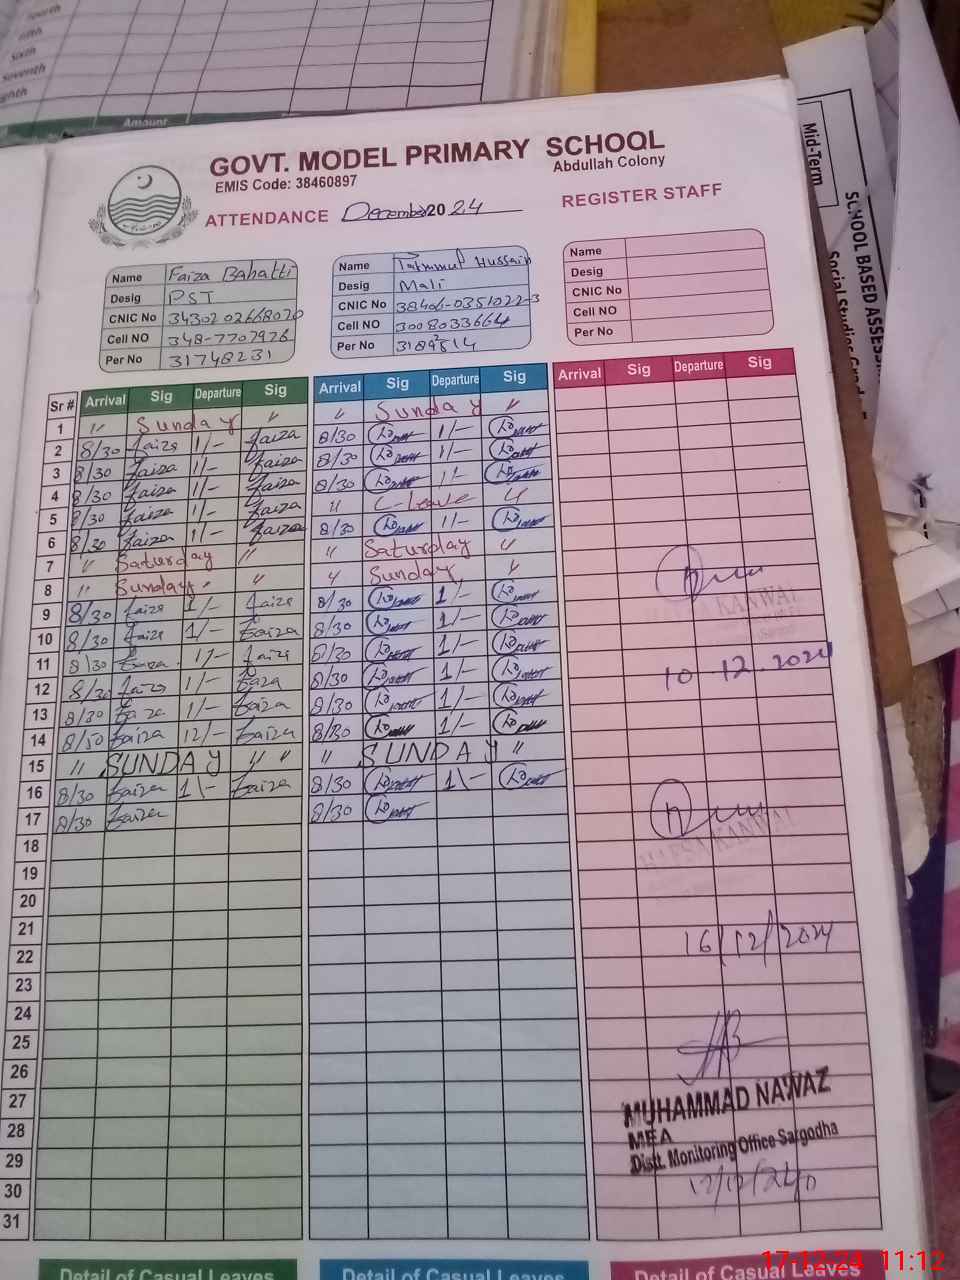 fourth
fifth
sixth
seventh
Amount
GOVT. MODEL PRIMARY SCHOOL
EMIS Code: 38460897
Abdullah Colony
ATTENDANCE December 2024 REGISTER STAFF
Mid-Term
SCHOOL BASED ASSESS
Social Studies Grade
Name Faiza Bahatti
Desig PST
CNIC No 3430202668070
Cell NO 348-7707976
Per No 31748231
Name Hussain
Desig Mali
CNIC No 38406-0351022-3
Cell NO 3008033664
Per No
Name
Desig
CNIC No
Cell NO
Per No
Sr # Arrival Sig Departure Sig Arrival Sig Departure Sig Arrival Sig Departure Sig
1 " Sunday " " Sunday "
2 8/30 faiza 1/- faiza 8/30 1/-
3 8/30 faiza 1/- faiza 8/30 1/-
4 8/30 faiza 1/- faiza 8/30 1/-
5 8/30 faiza 1/- faiza " C-leave "
6 8/30 faiza 1/- faiza 8/30 1/-
7 " Saturday " " Saturday "
8 " Sunday " " Sunday "
9 8/30 faiza 1/- faiza 8/30 1/-
10 8/30 faiza 1/- faiza 8/30 1/-
11 8/30 faiza 1/- faiza 8/30 1/-
12 8/30 faiza 1/- faiza 8/30 1/-
13 8/30 faiza 1/- faiza 8/30 1/-
14 8/30 faiza 12/- faiza 8/30 1/-
15 " SUNDAY " " " SUNDAY "
16 8/30 faiza 1/- faiza 8/30 1/-
17 8/30 faiza 8/30
18
19
20
21
22
23
24
25
26
27
28
29
30
31
KANWAL
10.12.2024
HAFSA KANWAL
16/12/2024
MUHAMMAD NAWAZ
MEA
Distt. Monitoring Office Sargodha
Detail of Casual Leaves Detail of Casual Leaves Detail of Casual Leaves
17.12.24 11:12